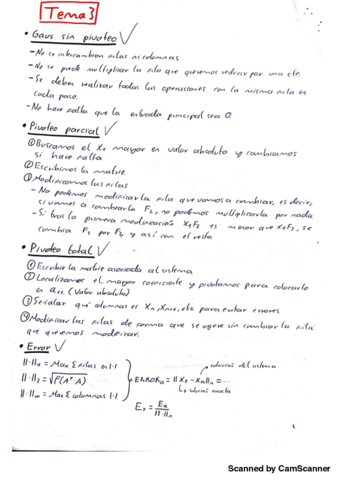 Tema 3
• Gaus sin pivoteo V
- No se intercambian filas ni columnas
- No se puede multiplicar la fila que queremos reducir por una cte.
- Se deben realizar todas las operaciones con la misma fila en
cada paso.
- No hace falta que la entrada principal sea
• Pivoteo parcial V
① Buscamos el X1 mayor en valor absoluto y cambiamos
si hace falta
② Escribimos la matriz
③ Modificamos las filas
- No podemos modificar la fila que vamos a cambiar, es decir,
si vamos a cambiar la F2, no podemos multiplicarla por nada
- Si tras la primera modificación X2F2 es mayor que X2F3, se
cambia F2 por F3 y así con el resto
• Pivoteo total V
① Escribir la matriz asociada al sistema
② Localizamos el mayor coeficiente y pivotamos para colocarlo
en a11 (valor absoluto)
③ Señalar qué columnas es Xn, Xn+1, etc para evitar errores
④ Modificar las filas de forma que se opere sin cambiar la fila
que queremos modificar.
• Error V
||·||1 = Max Σ filas en |·|
||·||2 = √ρ(Aᵗ·A)
||·||∞ = Max Σ columnas |·|
Error a = ||Xs - Xa||n = ...
solución del sistema
solución exacta
Er = Ea / ||·||n
Scanned by CamScanner